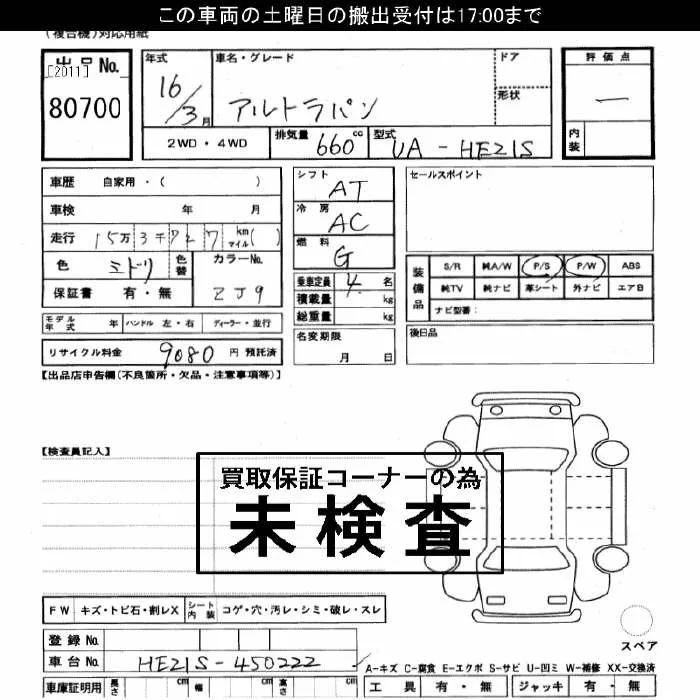 この車両の土曜日の搬出受付は17:00まで
(複合機)対応用紙
出品No.
[2011]
80700
年式
16/3月
車名・グレード
アルトラパン
ドア
形状
評価点
一
内装
2WD・4WD
排気量
660cc
型式
UA-HE21S
車歴 自家用・( )
車検 年 月
走行 15万3千727 km マイル( )
色 ミドリ 色替 カラーNo.
保証書 有・無 ZJ9
シフト
AT
冷房
AC
燃料
G
乗車定員 4名
積載量 kg
総重量 kg
セールスポイント
装備品
S/R 純A/W P/S P/W ABS
純TV 純ナビ 革シート 外ナビ エアB
ナビ型番:
モデル年式 年 ハンドル 左・右 ディーラー・並行
名変期限
月 日
後日品
リサイクル料金 9080 円 預託済
【出品店申告欄(不良箇所・欠品・注意事項等)】
【検査員記入】
買取保証コーナーの為
未検査
FW キズ・トビ石・割レX シート内装 コゲ・穴・汚レ・シミ・破レ・スレ
スペア
登録No.
車台No. HE21S-450222
A-キズ C-腐食 E-エクボ S-サビ U-凹ミ W-補修 XX-交換済
車庫証明用 長さ cm 幅 cm 高さ cm
工具 有・無 ジャッキ 有・無